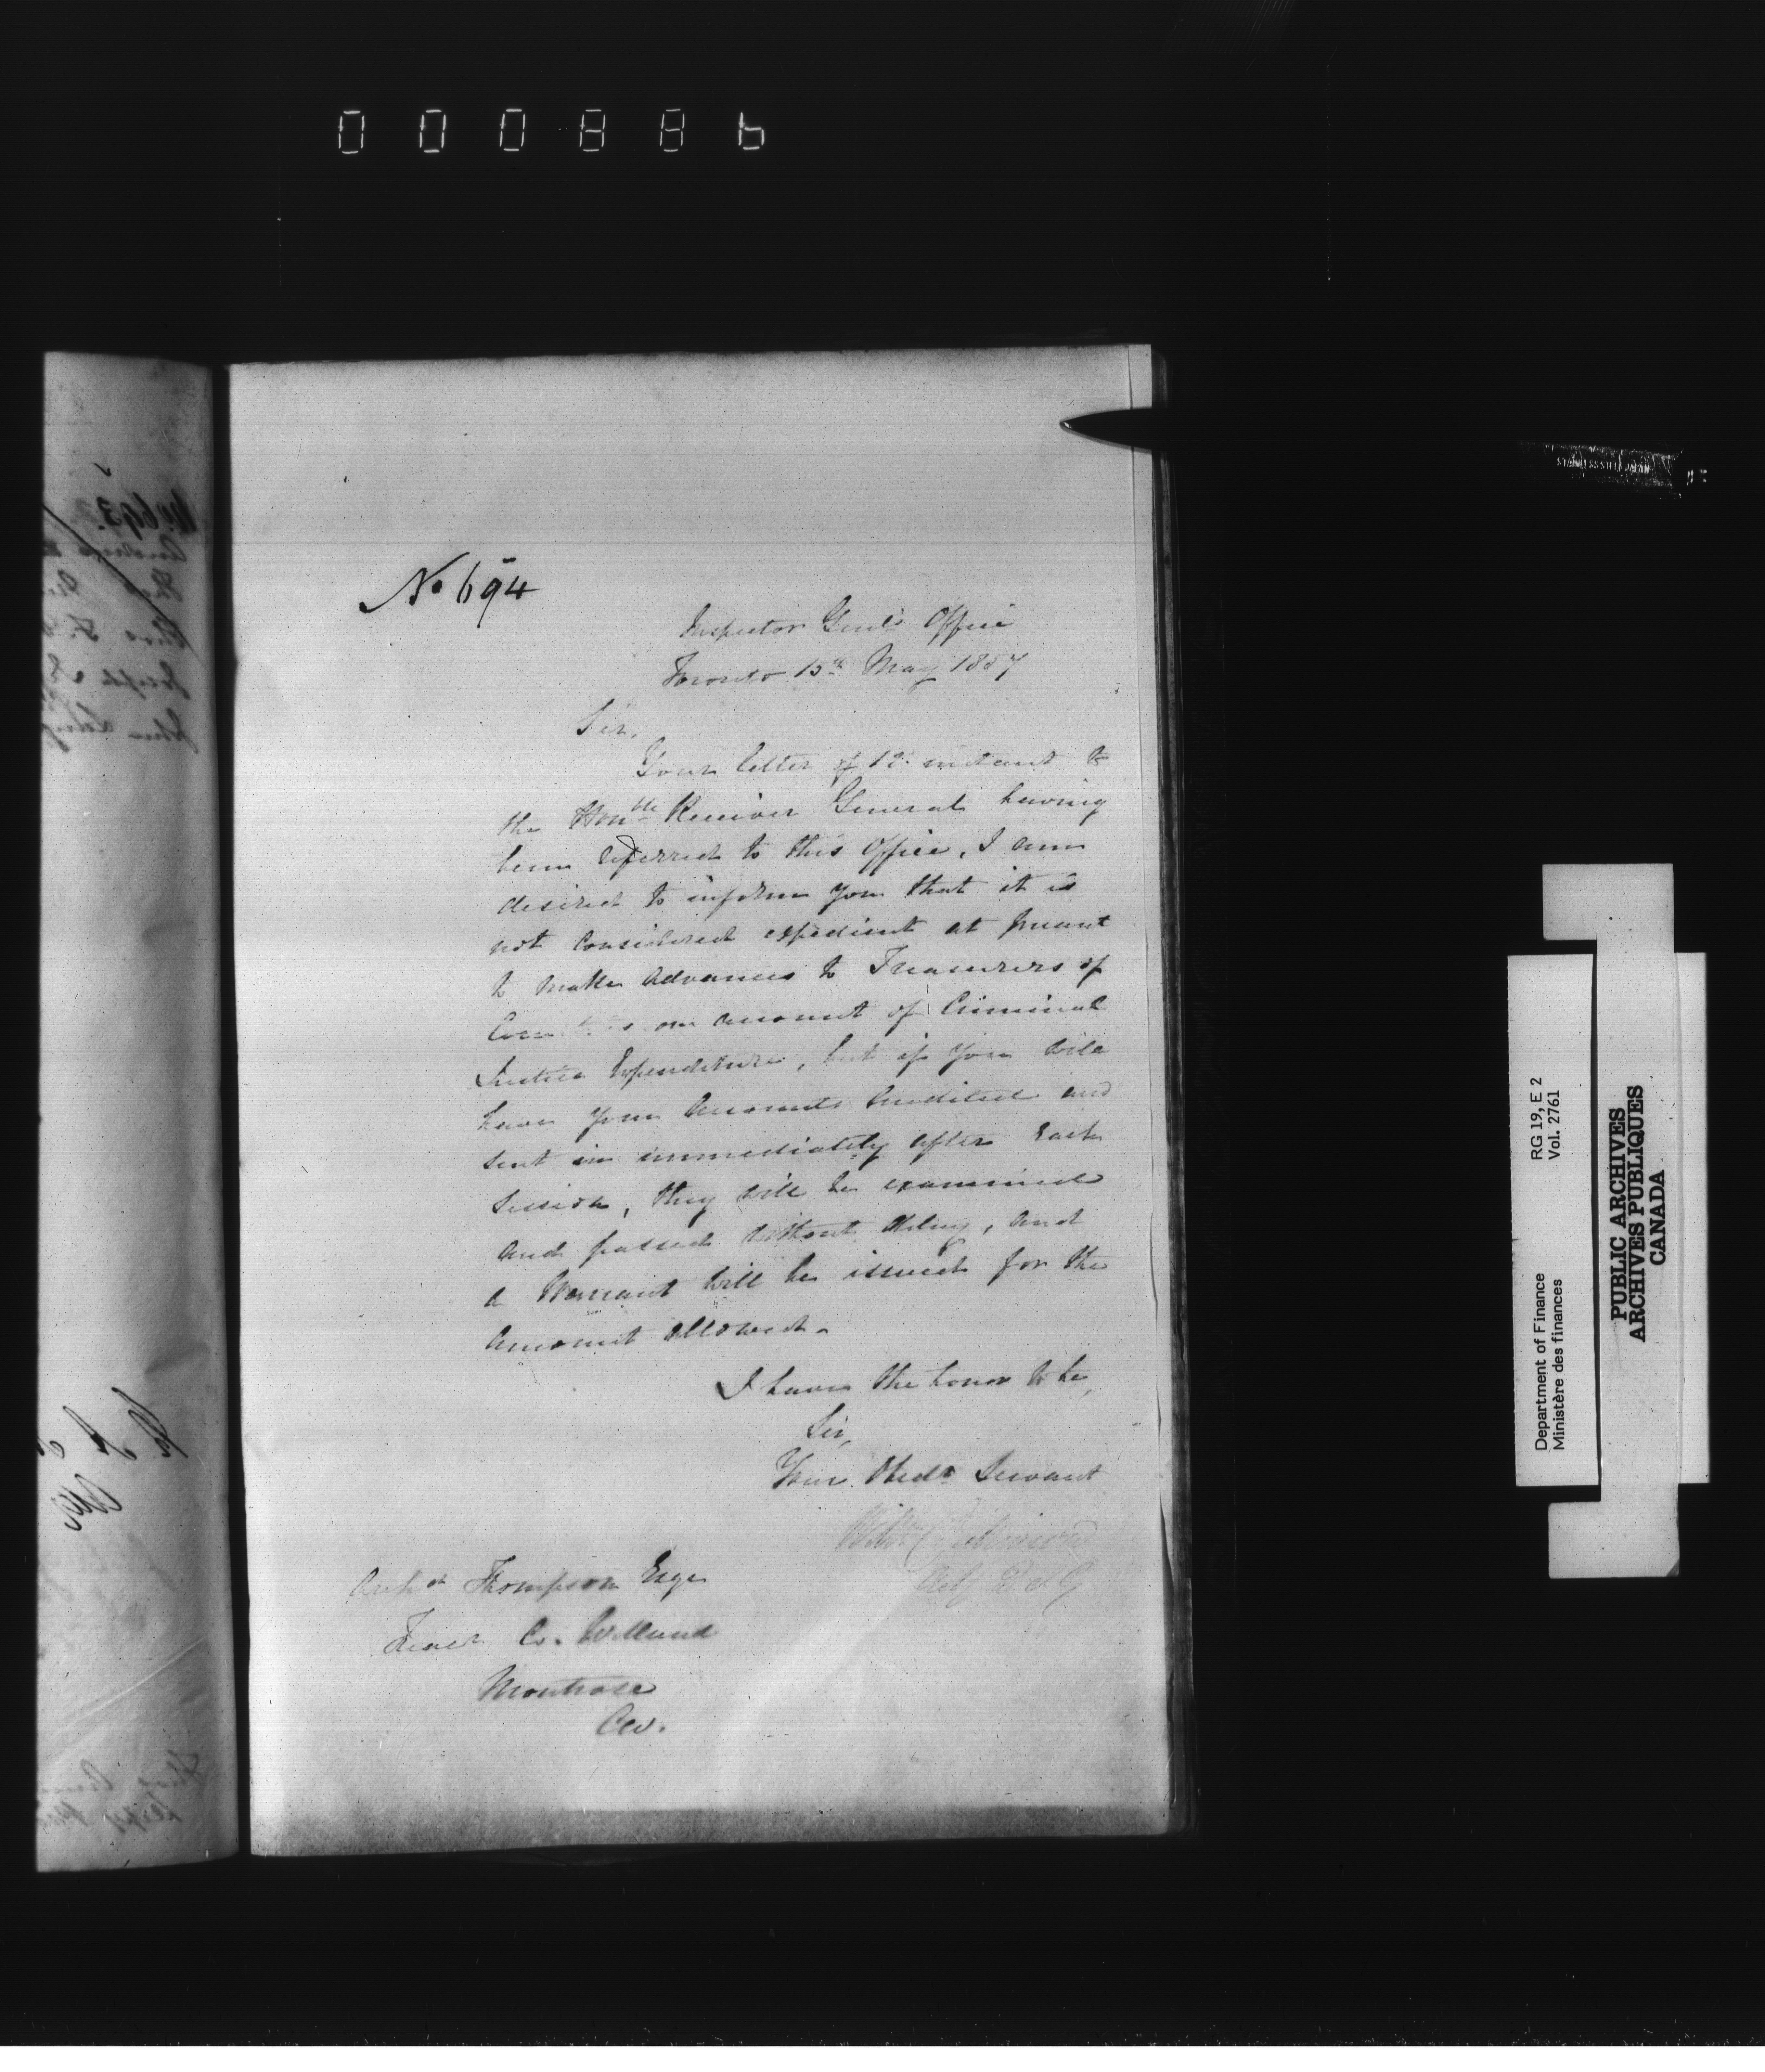 000886
No 694
Inspector Genl's Office
Toronto 15th May 1857
Sir,
Your letter of 12 instant to
the Honble Receiver General having
been referred to this Office, I am
desired to inform you that it is
not considered expedient at present
to make advances to Treasurers of
on account of Criminal
Justice Expenditure, but if you will
have your accounts audited and
sent in immediately after each
Session, they will be examined
and passed without delay, and
a Warrant will be issued for the
amount allowed.
I have the honor to be,
Sir,
Your Obedt Servant
Wm Dickinson
Actg D I G
Archd Thompson Esqr
Treasr Co. Welland
Montrose
CW.
No 693.
Department of Finance RG 19, E 2
Ministère des finances Vol. 2761
PUBLIC ARCHIVES
ARCHIVES PUBLIQUES
CANADA